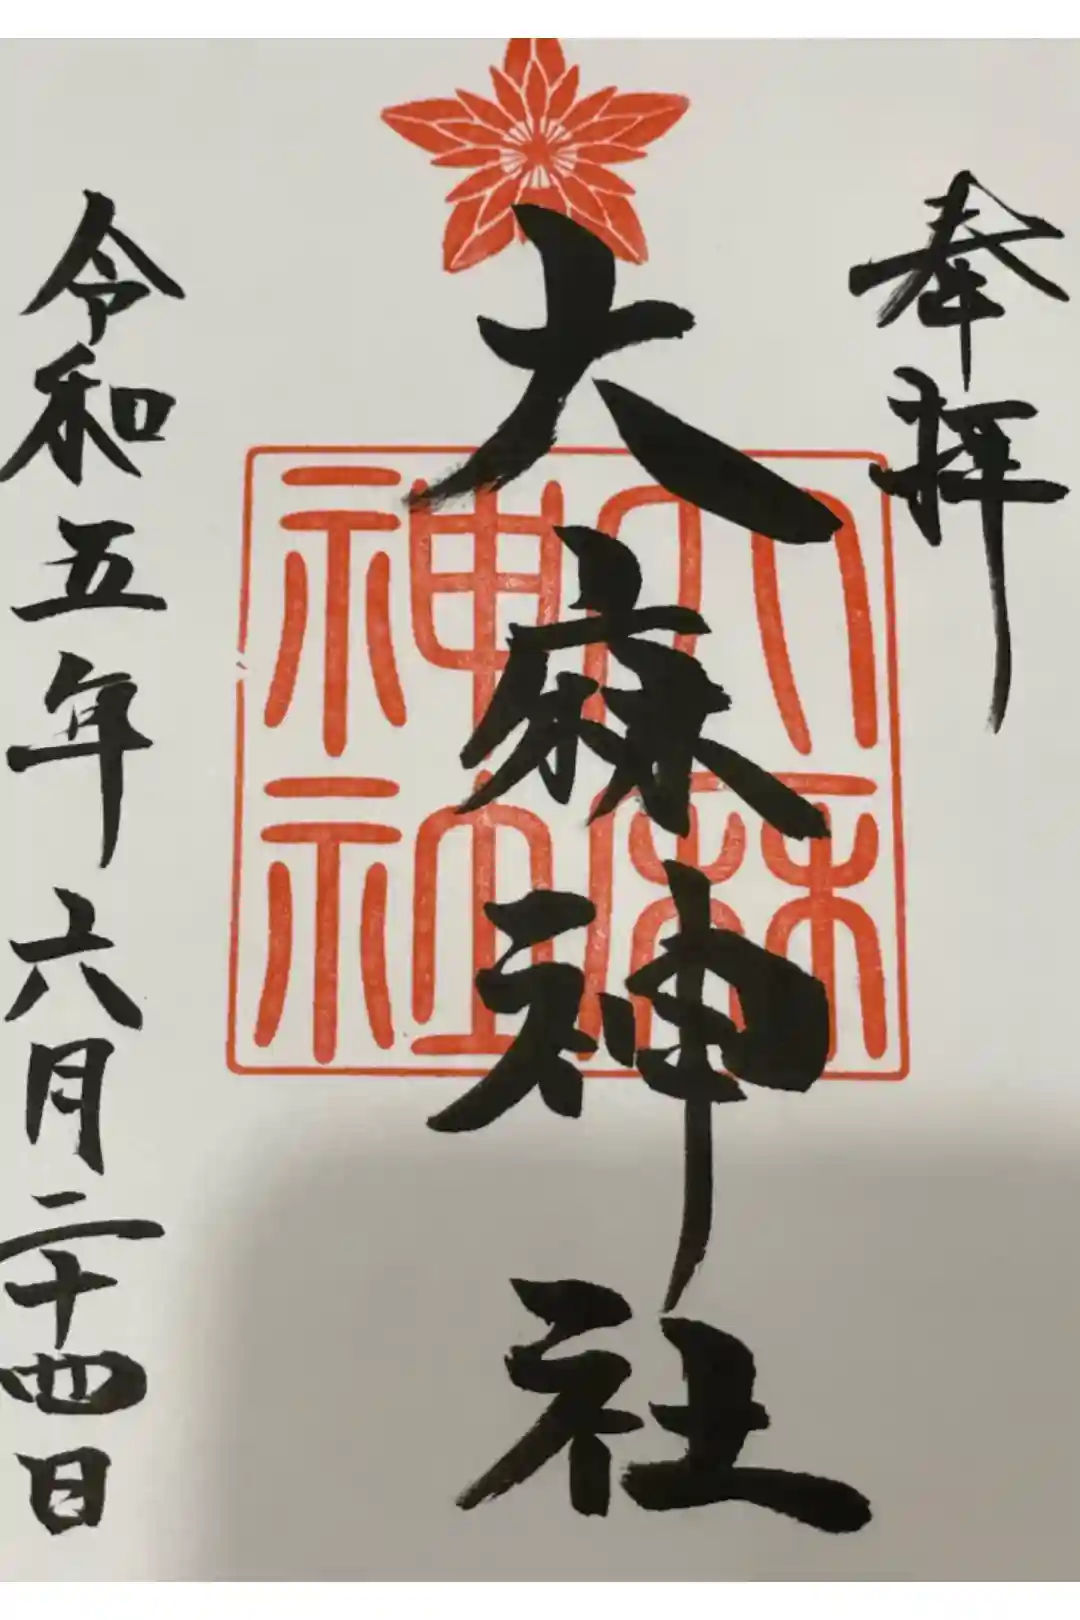 奉拝
大麻神社
大麻
神社
令和五年六月二十四日